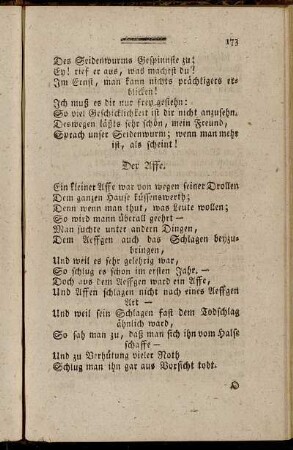 173
Des Seidenwurms Gespinnste zu!
Ey! rief er aus, was machest du?
Im Ernst, man kann nichts prächtigers er-
blicken!
Ich muß es dir nur frey gestehn:
So viel Geschicklichkeit ist dir nicht anzusehn.
Deswegen läßts sehr schön, mein Freund,
Sprach unser Seidenwurm; wenn man mehr
ist, als scheint!
Der Affe.
Ein kleiner Affe war von wegen seiner Drollen
Dem ganzen Hause küssenswerth;
Denn wenn man thut, was Leute wollen;
So wird man überall geehrt —
Man suchte unter andern Dingen,
Dem Aeffgen auch das Schlagen beyzu-
bringen,
Und weil es sehr gelehrig war,
So schlug es schon im ersten Jahr. —
Doch aus dem Aeffgen ward ein Affe,
Und Affen schlagen nicht nach eines Aeffgen
Art —
Und weil sein Schlagen fast dem Todschlag
ähnlich ward,
So sah man zu, daß man sich ihn vom Halse
schaffe —
Und zu Verhütung vieler Noth
Schlug man ihn gar aus Vorsicht todt.